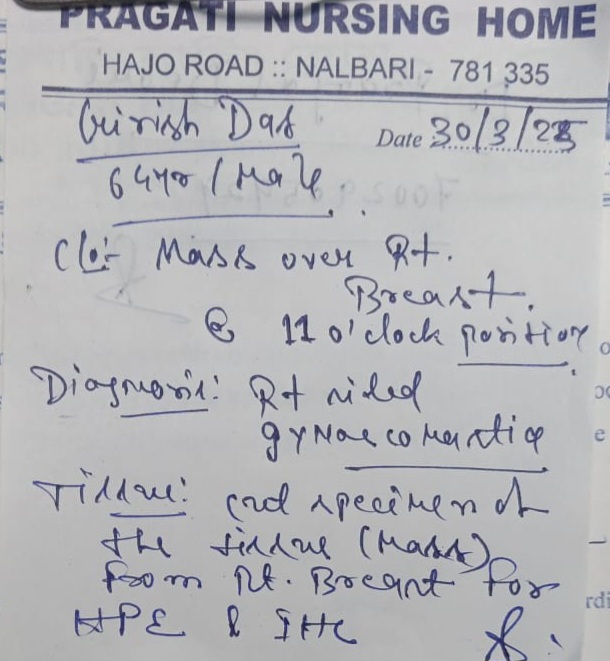 PRAGATI NURSING HOME
HAJO ROAD :: NALBARI - 781 335
Girish Das
Date 30/3/25
64yr / Male.
C/o:- Mass over Rt.
Breast.
@ 11 o'clock position.
Diagnosis: Rt sided
gynaecomastia
Tissue: specimen of
the tissue (Mass)
from Rt. Breast for
HPE & IHC